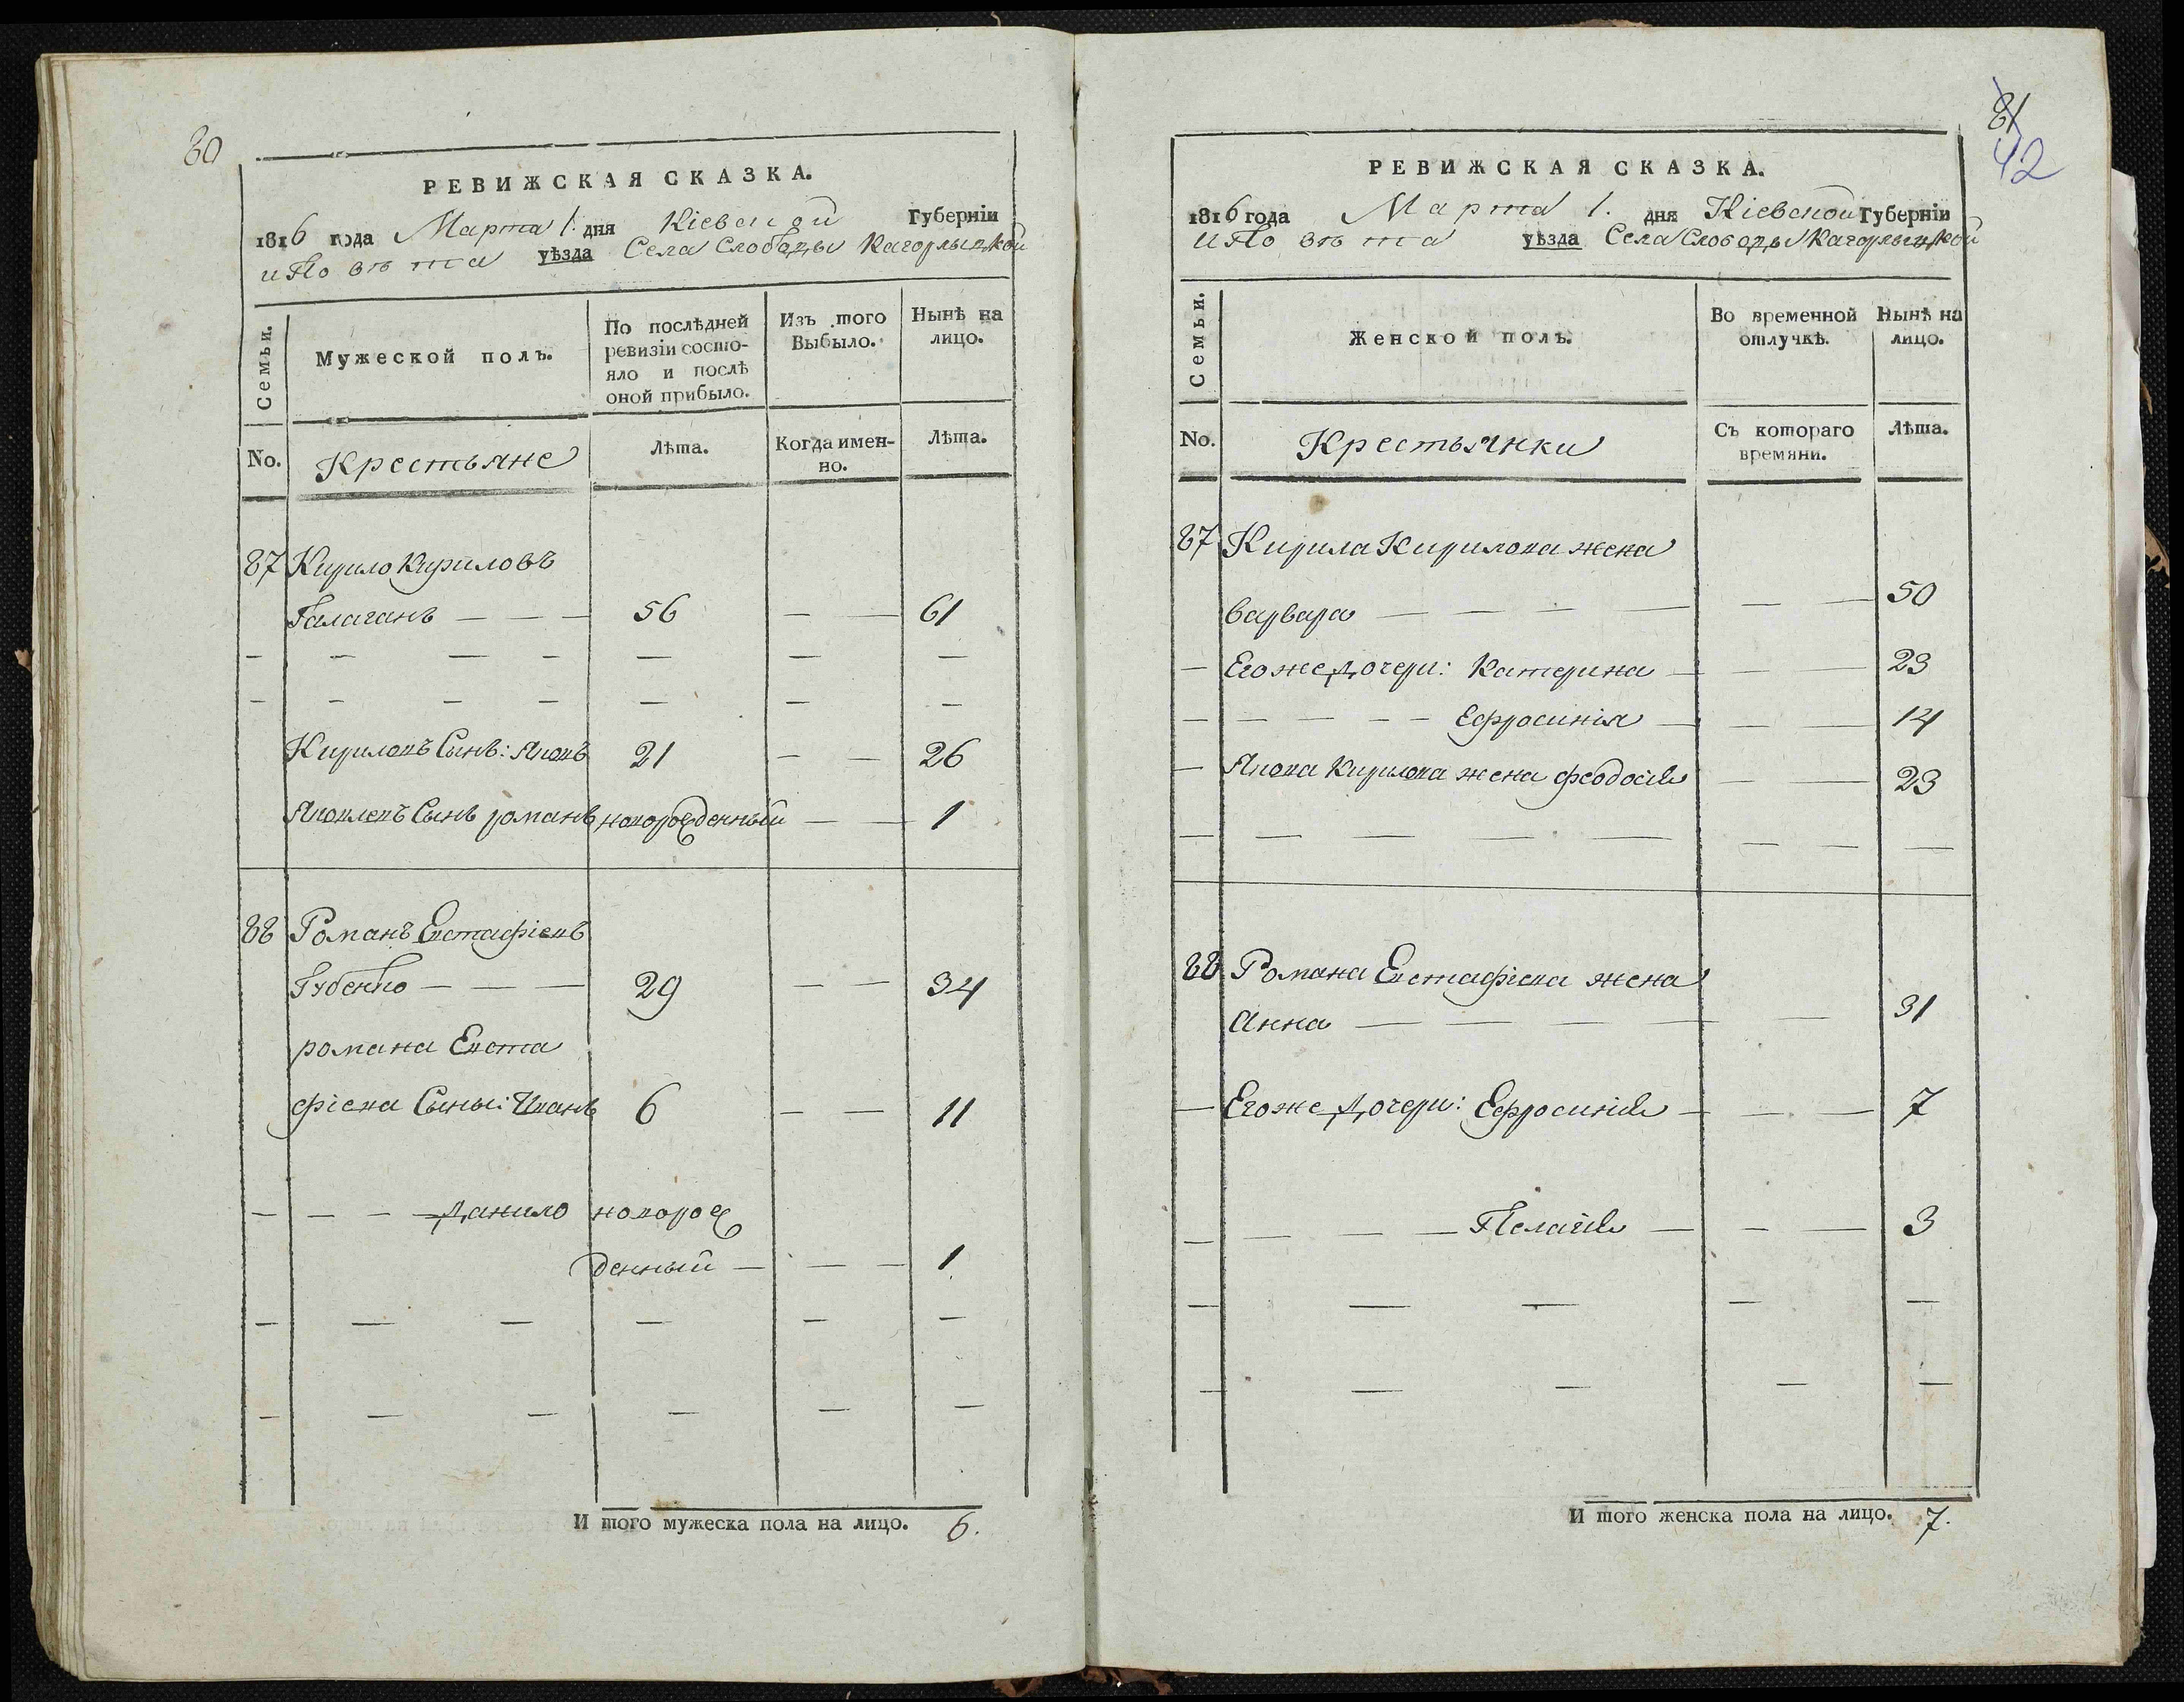 80
РЕВИЖСКАЯ СКАЗКА.
1816 года Марта 1. дня Кіевской Губерніи
и Повѣта уѣзда Села Слободы Кагорлыцкой
Семьи.
Мужеской полъ.
По послѣдней ревизіи состо-
яло и послѣ
оной прибыло.
Изъ того
Выбыло.
Нынѣ на
лицо.
No.
Крестьяне
Лѣта.
Когда имен-
но.
Лѣта.
87 Кирило Кириловъ
Галаганъ — — — 56 — — 61
Кириловъ Сынъ: Яковъ 21 — — 26
Яковлевъ Сынъ романъ новорожденный — — 1
88 Романъ Евстафіевъ
Губенко — — — 29 — — 34
романа Евста
фіева Сыны: Иванъ 6 — — 11
— — — — Данило новорож
денный — — — 1
И того мужеска пола на лицо. 6.
81
42
РЕВИЖСКАЯ СКАЗКА.
1816 года Марта 1. дня Кіевской Губерніи
и Повѣта уѣзда Села Слободы Кагорлыцкой
Семьи.
Женской полъ.
Во временной
отлучкѣ.
Нынѣ на
лицо.
No.
Крестьянки
Съ котораго
времяни.
Лѣта.
87 Кирила Кирилова жена
варвара — — — — — — 50
— Его же Дочери: Катерина — — — 23
— — — — — — Ефросинія — — — 14
— Якова Кирилова жена феодосія — — 23
88 Романа Евстафіева жена
Анна — — — — — 31
— Его же Дочери: Ефросинія — — — 7
— — — — Пелагія — — — 3
И того женска пола на лицо. 7.